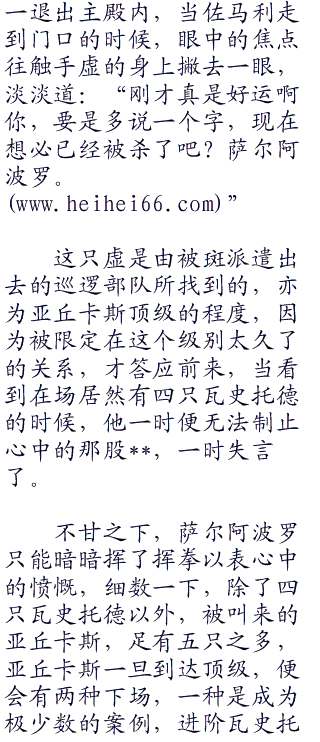 一退出主殿内，当佐马利走
到门口的时候，眼中的焦点
往触手虚的身上撇去一眼，
淡淡道：“刚才真是好运啊
你，要是多说一个字，现在
想必已经被杀了吧？萨尔阿
波罗。
(www.heihei66.com)”
这只虚是由被斑派遣出
去的巡逻部队所找到的，亦
为亚丘卡斯顶级的程度，因
为被限定在这个级别太久了
的关系，才答应前来，当看
到在场居然有四只瓦史托德
的时候，他一时便无法制止
心中的那股**，一时失言
了。
不甘之下，萨尔阿波罗
只能暗暗挥了挥拳以表心中
的愤慨，细数一下，除了四
只瓦史托德以外，被叫来的
亚丘卡斯，足有五只之多，
亚丘卡斯一旦到达顶级，便
会有两种下场，一种是成为
极少数的案例，进阶瓦史托